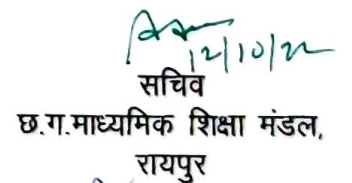 12/10/22
सचिव
छ.ग.माध्यमिक शिक्षा मंडल,
रायपुर